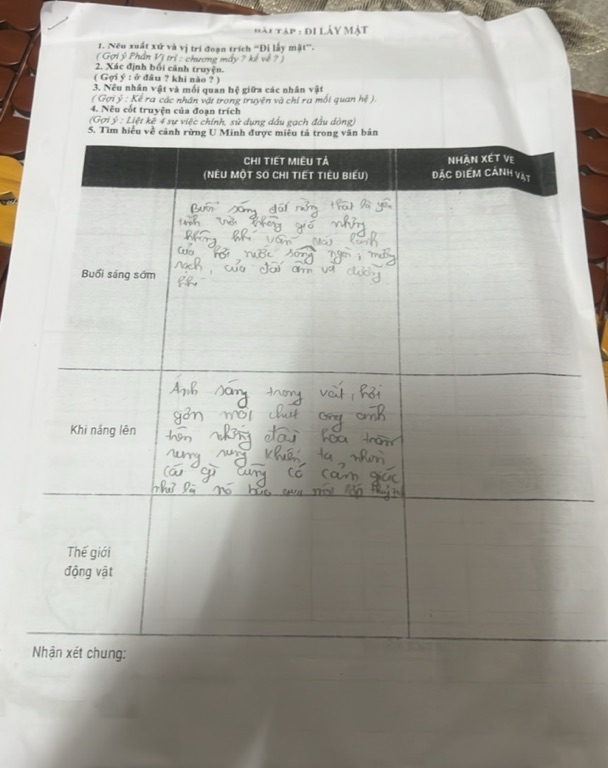 BÀI TẬP : ĐI LẤY MẬT
1. Nêu xuất xứ và vị trí đoạn trích “Đi lấy mật”.
( Gợi ý Phần Vị trí : chương mấy ? kể về ? )
2. Xác định bối cảnh truyện.
( Gợi ý : ở đâu ? khi nào ? )
3. Nêu nhân vật và mối quan hệ giữa các nhân vật
( Gợi ý : Kể ra các nhân vật trong truyện và chỉ ra mối quan hệ ).
4. Nêu cốt truyện của đoạn trích
(Gợi ý : Liệt kê 4 sự việc chính, sử dụng dấu gạch đầu dòng)
5. Tìm hiểu về cảnh rừng U Minh được miêu tả trong văn bản
CHI TIẾT MIÊU TẢ
(NÊU MỘT SỐ CHI TIẾT TIÊU BIỂU)
NHẬN XÉT VỀ
ĐẶC ĐIỂM CẢNH VẬT
Buổi sáng sớm
Buổi sáng đất rừng thật là yên
tĩnh trời không gió nhưng
không khí vẫn mát lạnh
của hơi nước sông ngòi, mương
rạch, của đất ấm và dưỡng
khí
Khi nắng lên
Ánh sáng trong vắt, hơi
gợn một chút óng ánh
trên những đầu hoa tràm
rung rung khiến ta nhìn
cái gì cũng có cảm giác
như là nó bao qua một lớp thủy
Thế giới
động vật
Nhận xét chung: